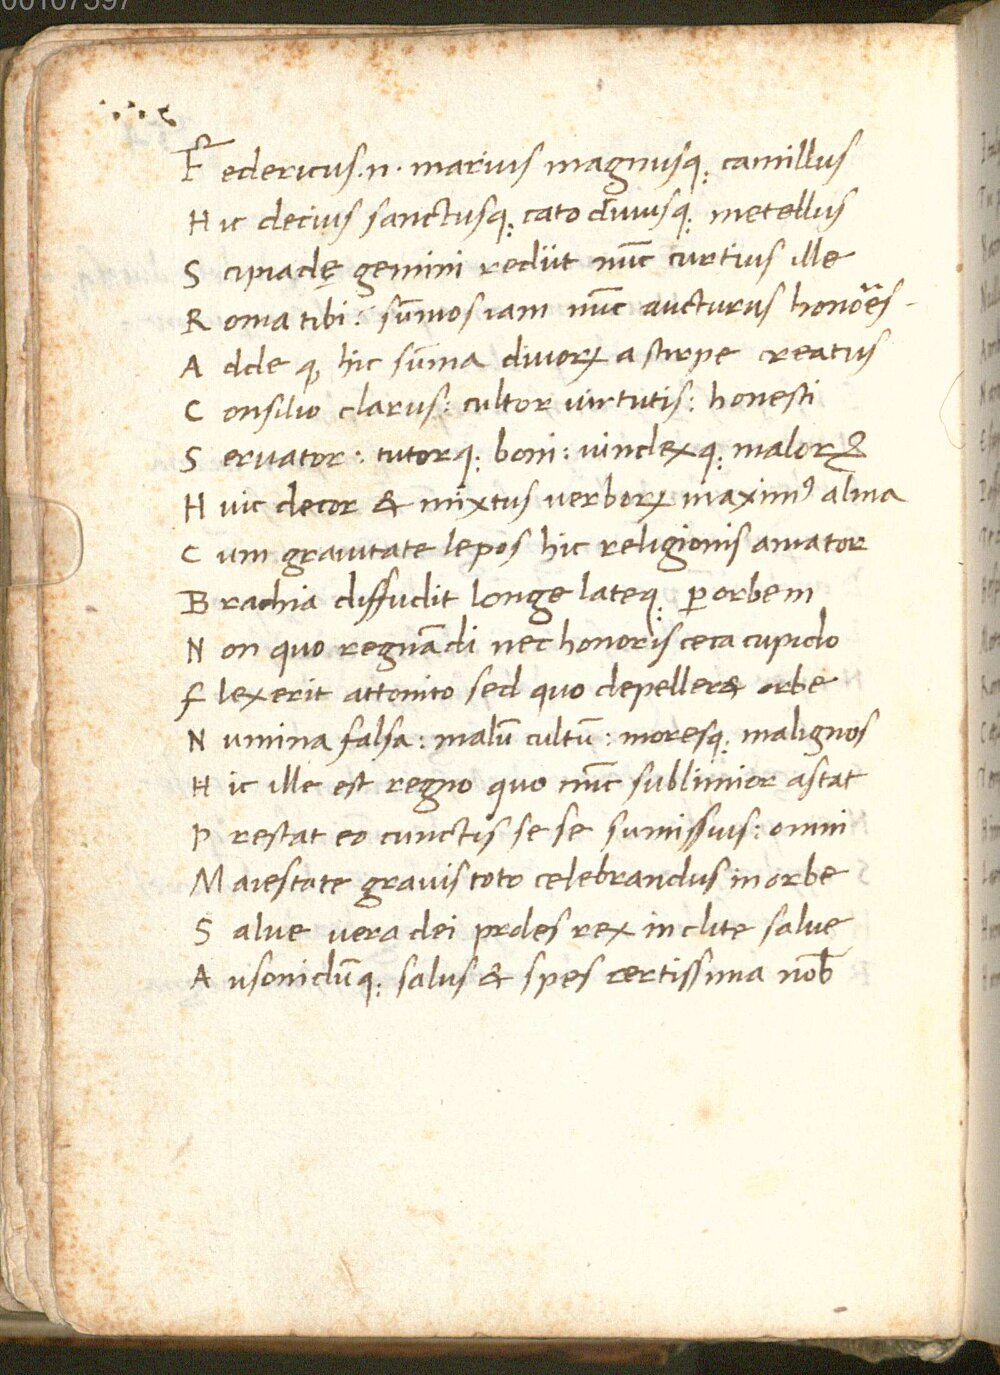 00107597
Federicus .n. marius magnusq; camillus
Hic decius sanctusq; cato diuusq; metellus
Scipiadę gemini rediit nūc curtius ille
Roma tibi: sūmos iam nūc aucturus honōes.
Adde q hic sūma diuorꝝ a stirpe creatus
Consilio clarus: cultor uirtutis: honesti
Seruator: tutorq; boni: uindexq; malorꝝ &
Huic decor & mixtus uerborꝝ maximꝰ alma
Cum grauitate lepos hic religionis amator
Brachia diffudit longe lateq; ꝑ orbem
Non quo regnādi nec honoris ceca cupido
Flexerit attonito sed quo depeller& orbe
Numina falsa: malū cultū: moresq; malignos
Hic ille est regno quo nūc sublimior astat
Prestat eo cunctis se se sumissius: omni
Maiestate grauis toto celebrandus in orbe
Salue uera dei proles rex inclite salue
Ausonidūq; salus & spes certissima nob̄